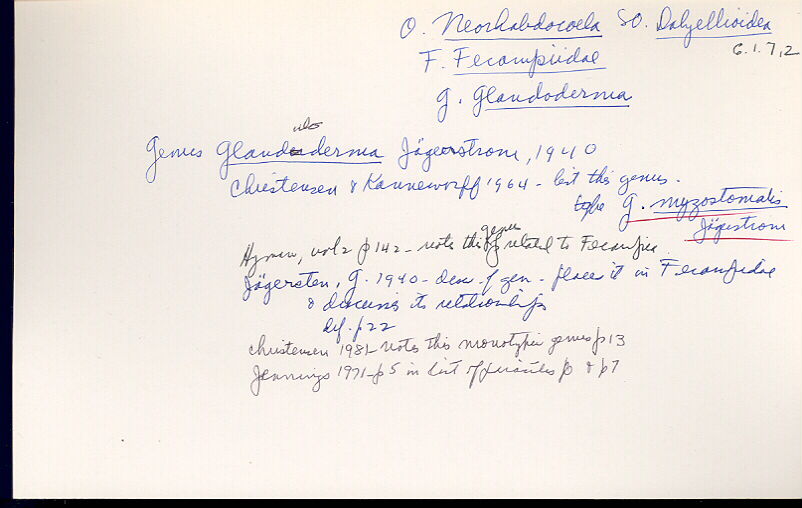 O. Neorhabdocoela SO. Dalyellioidea
6.1.7,2
F. Fecampiidae
G. Glandoderma
Genus Glandoderma Jägerstrom, 1940
Christensen & Kanneworff 1964 - list this genus.
type G. myzostomatis
Jägerstrom
Hyman, vol 2 p 142 - notes this genus related to Fecampia
Jägersten, G. 1940 - desc. of gen - places it in Fecampiidae
& discusses its relationships
def. p 22
Christensen 1981 - notes this monotypic genus p 13
Jennings 1971 - p 5 in list of parasites p & p 7